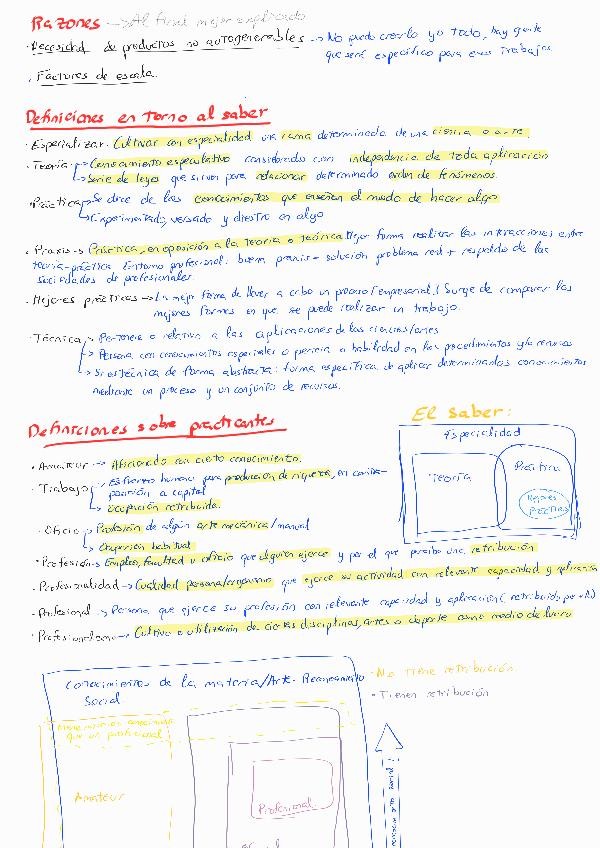 Razones → Al final mejor explicado
· Necesidad de productos no autogenerables → No puedo crearlo yo todo, hay gente
que será específico para esos trabajos
· Factores de escala.
Definiciones en torno al saber
· Especializar. Cultivar con especialidad una rama determinada de una ciencia o arte.
· Teoría → Conocimiento especulativo considerado con independencia de toda aplicación
→ Serie de leyes que sirven para relacionar determinado orden de fenómenos.
· Práctica → Se dice de los conocimientos que enseñan el modo de hacer algo
→ Experimentado, versado y diestro en algo
· Praxis → Práctica, en oposición a la teoría o teórica. Mejor forma realizar las interacciones entre
teoría-práctica. Entorno profesional: buena praxis = solución problema real + respaldo de las
sociedades de profesionales
· Mejores prácticas → La mejor forma de llevar a cabo un proceso (empresarial). Surge de comparar las
mejores formas en que se puede realizar un trabajo.
· Técnica → Pertenece o relativo a las aplicaciones de las ciencias/artes
→ Persona con conocimientos especiales o pericia o habilidad en los procedimientos y/o recursos
→ Si es técnica de forma abstracta: forma específica de aplicar determinados conocimientos
mediante un proceso y un conjunto de recursos.
Definiciones sobre practicantes
· Amateur → Aficionado con cierto conocimiento.
· Trabajo → Esfuerzo humano para producción de riqueza, en contra-
posición a capital
→ Ocupación retribuida.
· Oficio → Profesión de algún arte mecánica/manual
→ Ocupación habitual
· Profesión → Empleo, facultad u oficio que alguien ejerce y por el que percibe una retribución
· Profesionalidad → Cualidad persona/organismo que ejerce su actividad con relevante capacidad y aplicación
· Profesional → Persona que ejerce su profesión con relevante capacidad y aplicación (retribuido,
· Profesionalismo → Cultivo o utilización de ciertas disciplinas, artes o deporte como medio de lucro
El saber:
Especialidad
Teoría
Práctica
Mejores
prácticas
Conocimientos de la materia/Arte. Reconocimiento
Social
que un profesional
Amateur
Profesional
· No tiene retribución.
· Tienen retribución